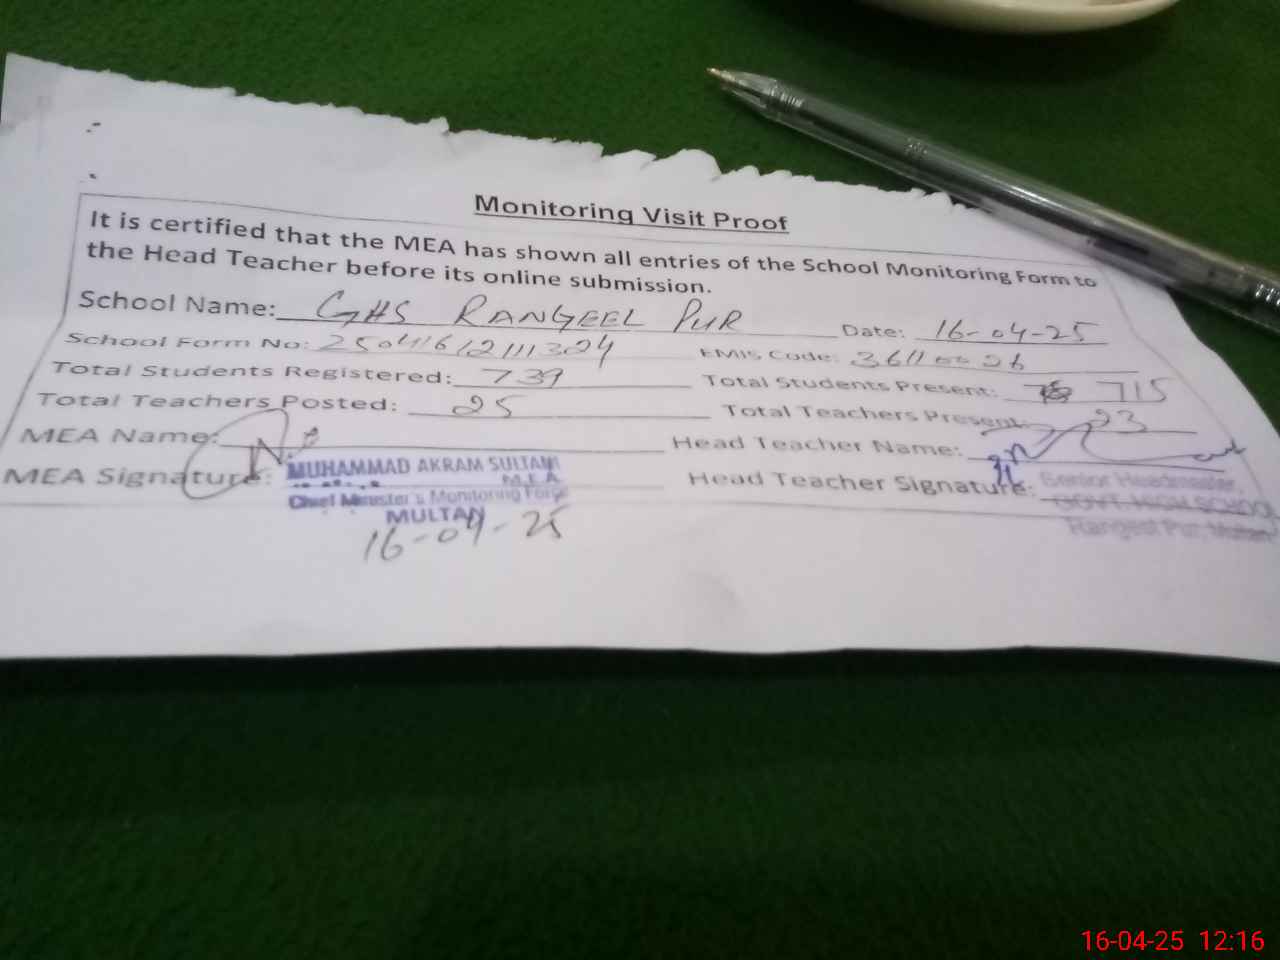 Monitoring Visit Proof
It is certified that the MEA has shown all entries of the School Monitoring Form to
the Head Teacher before its online submission.
School Name: GHS RANGEEL PUR Date: 16-04-25
School Form No: EMIS Code:
Total Students Registered: 739 Total Students Present: 715
Total Teachers Posted: 25 Total Teachers Present: 23
MEA Name: Head Teacher Name:
MEA Signature: Head Teacher Signature:
MUHAMMAD AKRAM SULTANI
M.E.A
Chief Minister's Monitoring Force
MULTAN
16-04-25
Senior Headmaster,
GOVT. HIGH SCHOOL
Rangeel Pur, Multan
16-04-25 12:16